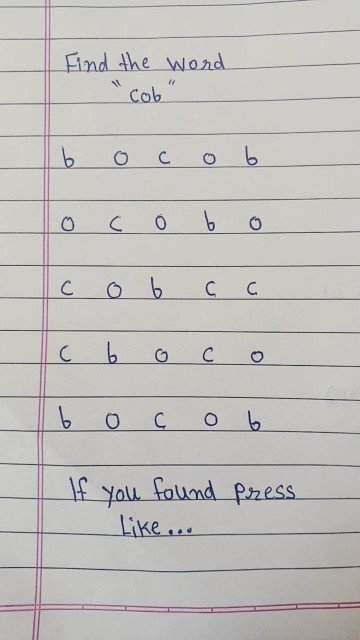 Find the word
"cob"
b o c o b
o c o b o
c o b c c
c b o c o
b o c o b
If you found press
Like...